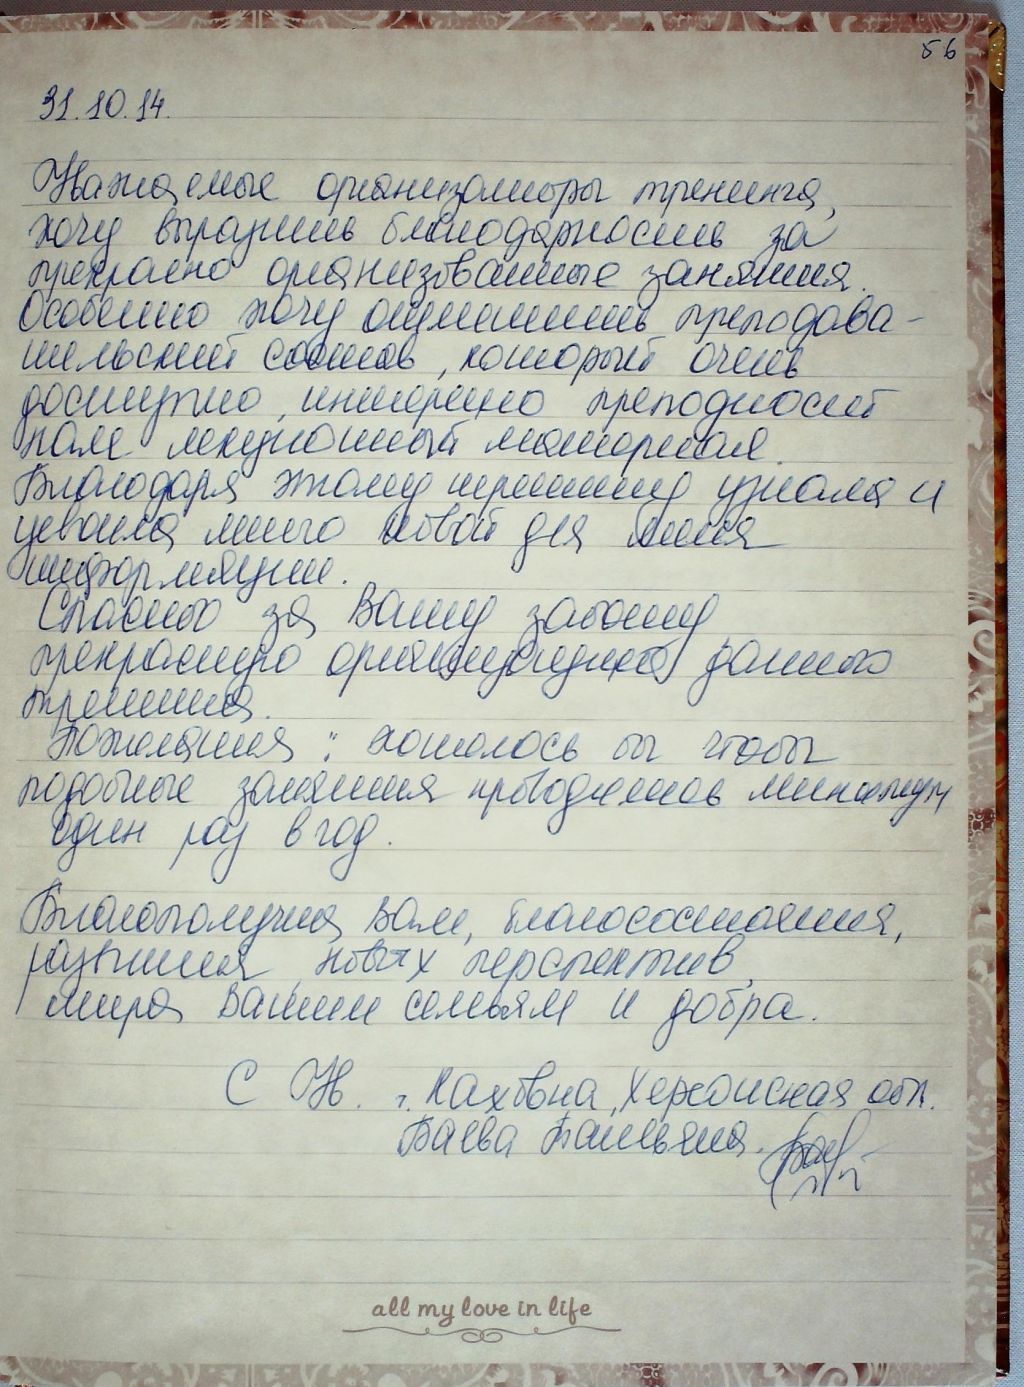 56
31.10.14.
Уважаемые организаторы тренинга,
хочу выразить благодарность за
прекрасно организованные занятия.
Особенно хочу отметить преподава-
тельский состав, который очень
доступно, интересно преподносит
нам лекционный материал.
Благодаря этому тренингу узнала и
усвоила много новой для меня
информации.
Спасибо за Вашу заботу
прекрасную организацию данного
тренинга.
Пожелания: хотелось бы чтобы
подобные занятия проводились минимум
один раз в год.
Благополучия Вам, благосостояния,
развития, новых перспектив,
мира Вашим семьям и добра.
С Ув. г. Каховка, Херсонская обл.
Баева Татьяна.
all my love in life